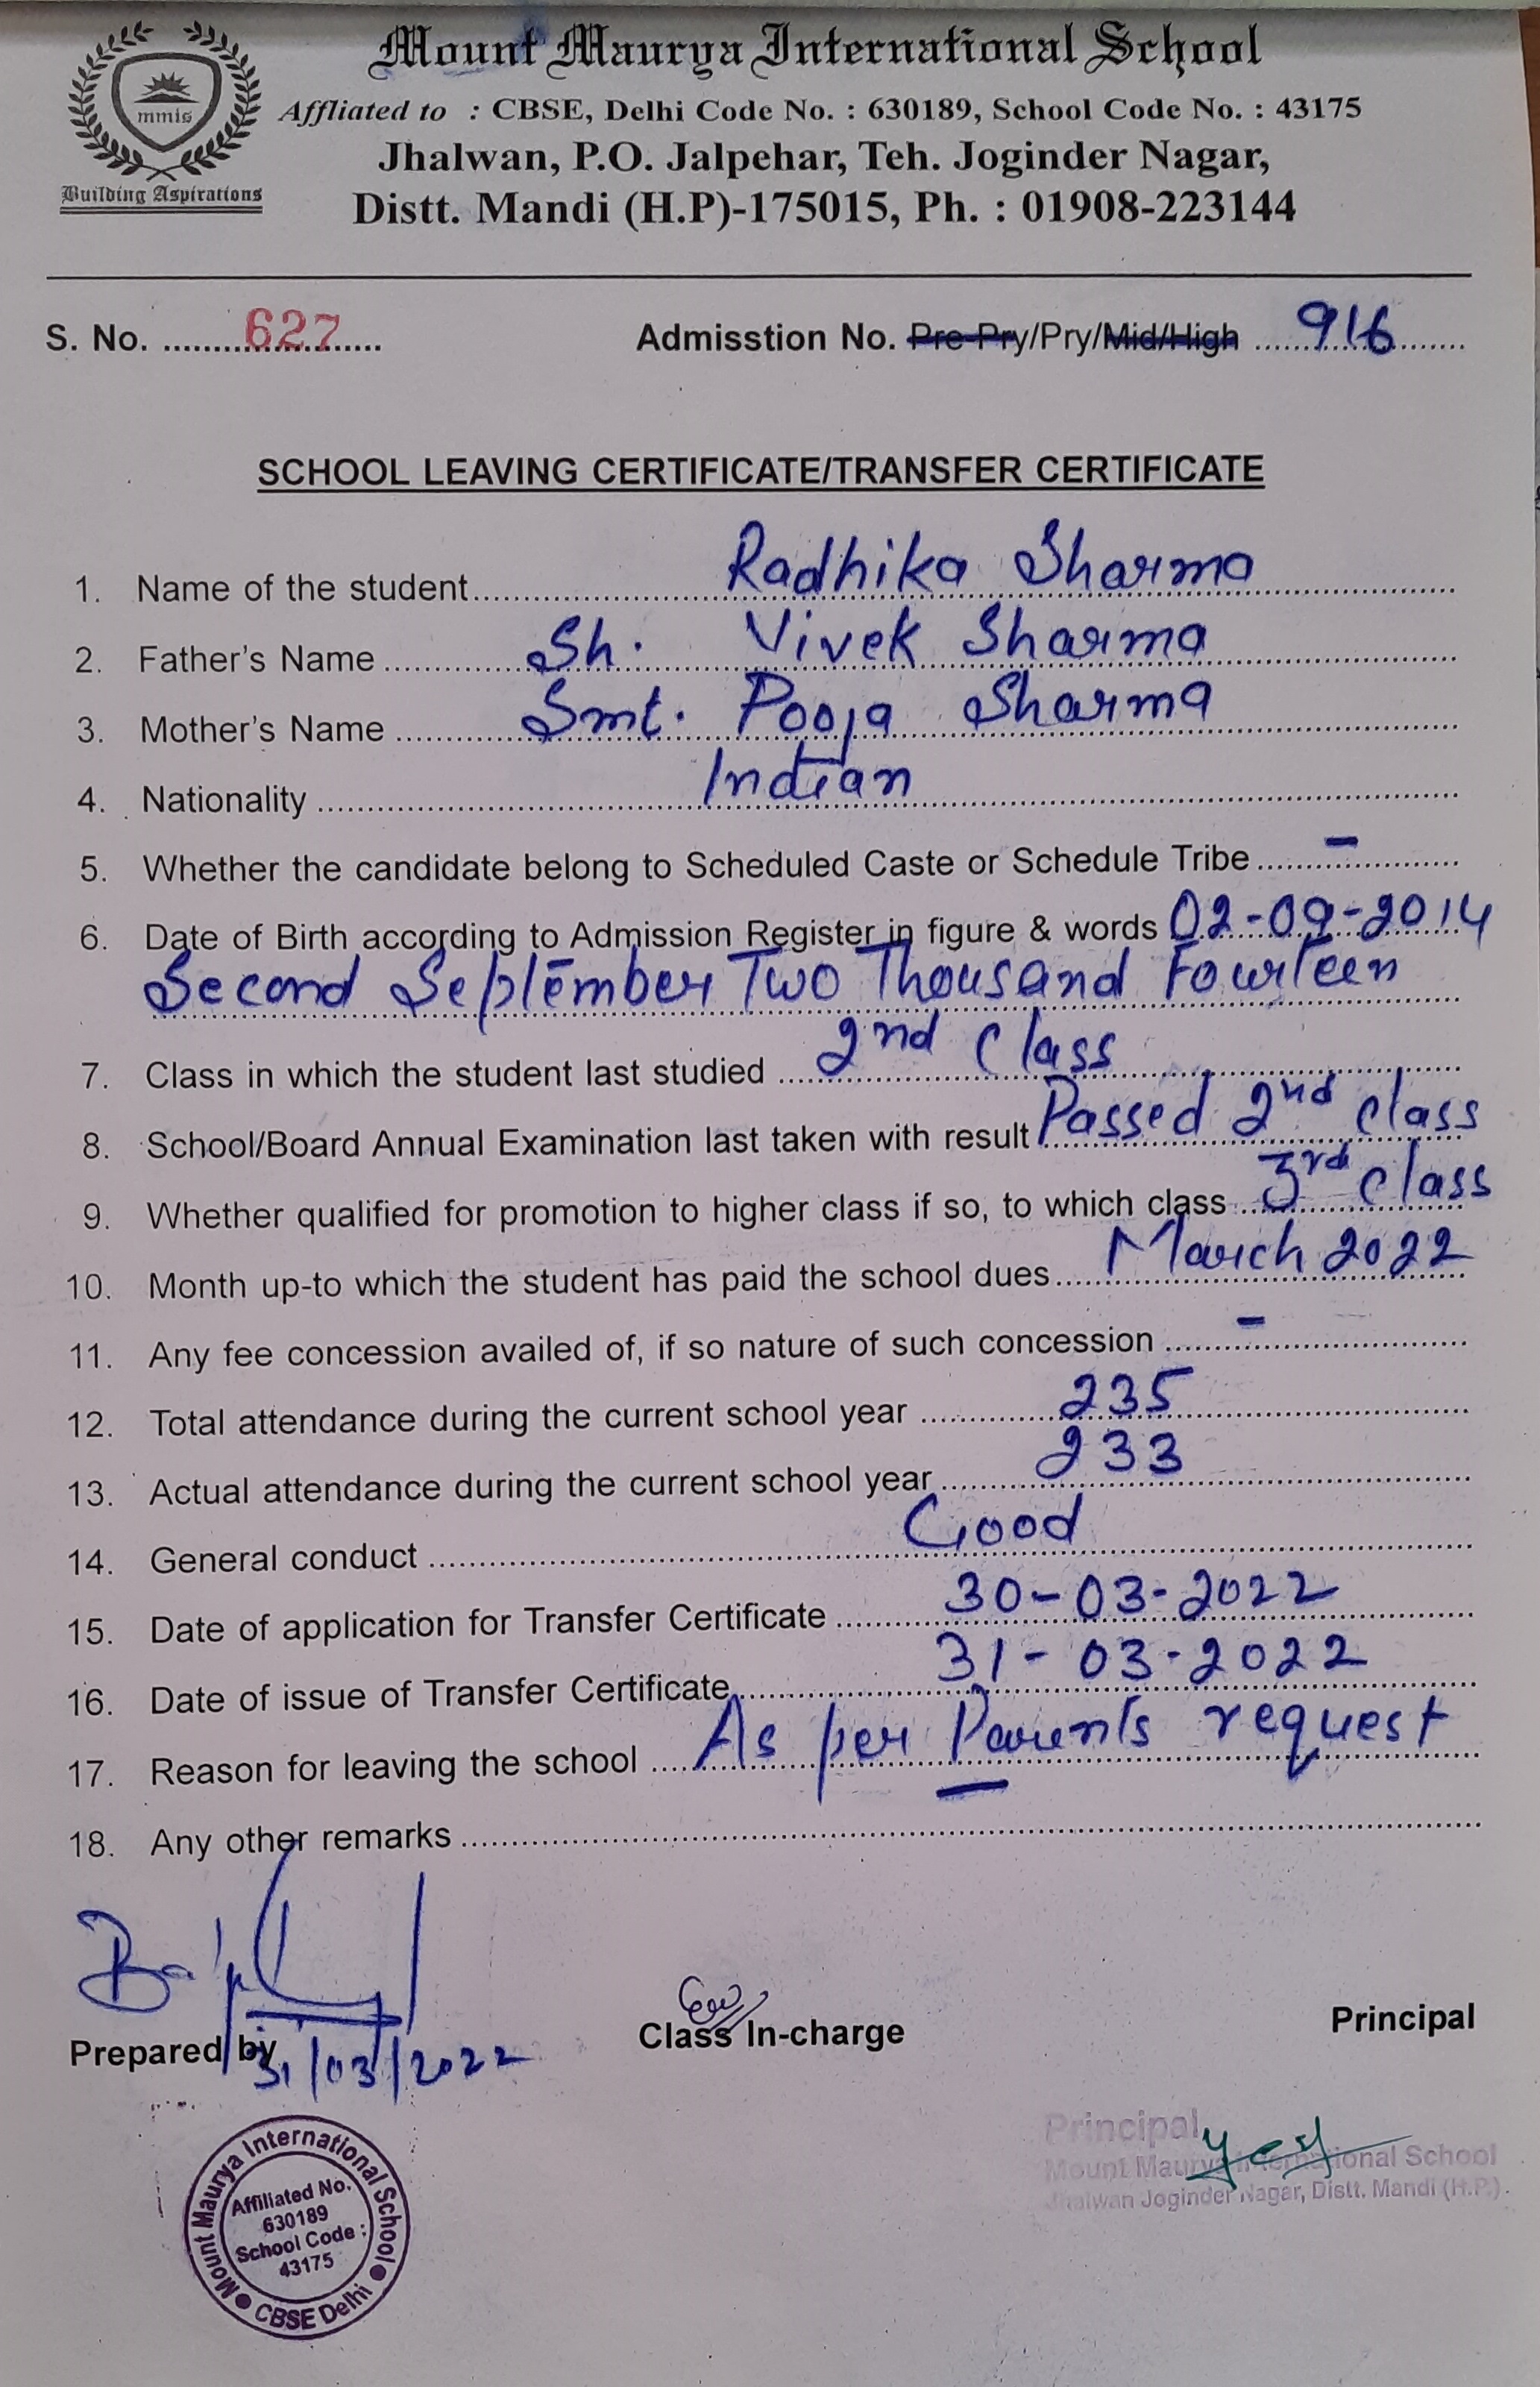 Mount Maurya International School
mmis
Building Aspirations
Affliated to : CBSE, Delhi Code No. : 630189, School Code No. : 43175
Jhalwan, P.O. Jalpehar, Teh. Joginder Nagar,
Distt. Mandi (H.P)-175015, Ph. : 01908-223144
S. No. ......627...... Admisstion No. Pre-Pry/Pry/Mid/High ......916......
SCHOOL LEAVING CERTIFICATE/TRANSFER CERTIFICATE
1. Name of the student...... Radhika Sharma
2. Father's Name ...... Sh. Vivek Sharma
3. Mother's Name ...... Smt. Pooja Sharma
4. Nationality ...... Indian
5. Whether the candidate belong to Scheduled Caste or Schedule Tribe...... –
6. Date of Birth according to Admission Register in figure & words 02-09-2014
Second September Two Thousand Fourteen
7. Class in which the student last studied ...... 2nd Class
8. School/Board Annual Examination last taken with result Passed 2nd class
9. Whether qualified for promotion to higher class if so, to which class ...... 3rd class
10. Month up-to which the student has paid the school dues...... March 2022
11. Any fee concession availed of, if so nature of such concession ...... –
12. Total attendance during the current school year ...... 235
13. Actual attendance during the current school year ...... 233
14. General conduct ...... Good
15. Date of application for Transfer Certificate ...... 30-03-2022
16. Date of issue of Transfer Certificate...... 31-03-2022
17. Reason for leaving the school ...... As per Parents request
18. Any other remarks ...... –
Prepared by Class In-charge Principal
31/03/2022
Principal
Mount Maurya International School
Jhalwan Joginder Nagar, Distt. Mandi (H.P.).
Mount Maurya International School
Affiliated No.
630189
School Code :
43175
CBSE Delhi